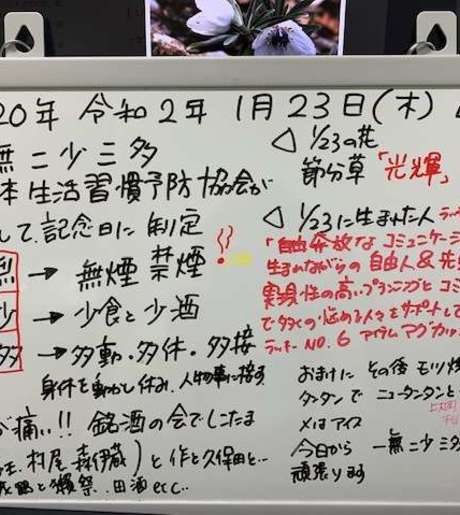 20年 令和2年 1月23日(木)
無二少三多
本生活習慣予防協会が
して、記念日に制定
無 → 無煙 禁煙
少 → 少食と少酒
多 → 多動・多休・多接
身体を動かし休み、人物事に接す
が痛い!! 銘酒の会でしこたま
村尾 森伊蔵)と作と久保田と…
と獺祭、田酒etc…
◁ 1/23の花
節分草「光輝」
◁ 1/23に生まれた人
「自由奔放なコミュニケーシ
生まれながらの自由人&先
実現性の高いプランニングとコミ
で多くの悩める人々をサポートして
ラッキーNO.6 アイテム マグカッ
おまけに その後 モツ焼
タンタンで ニュータンタンと
〆はアイス
今日から 一無二少三多
頑張ります